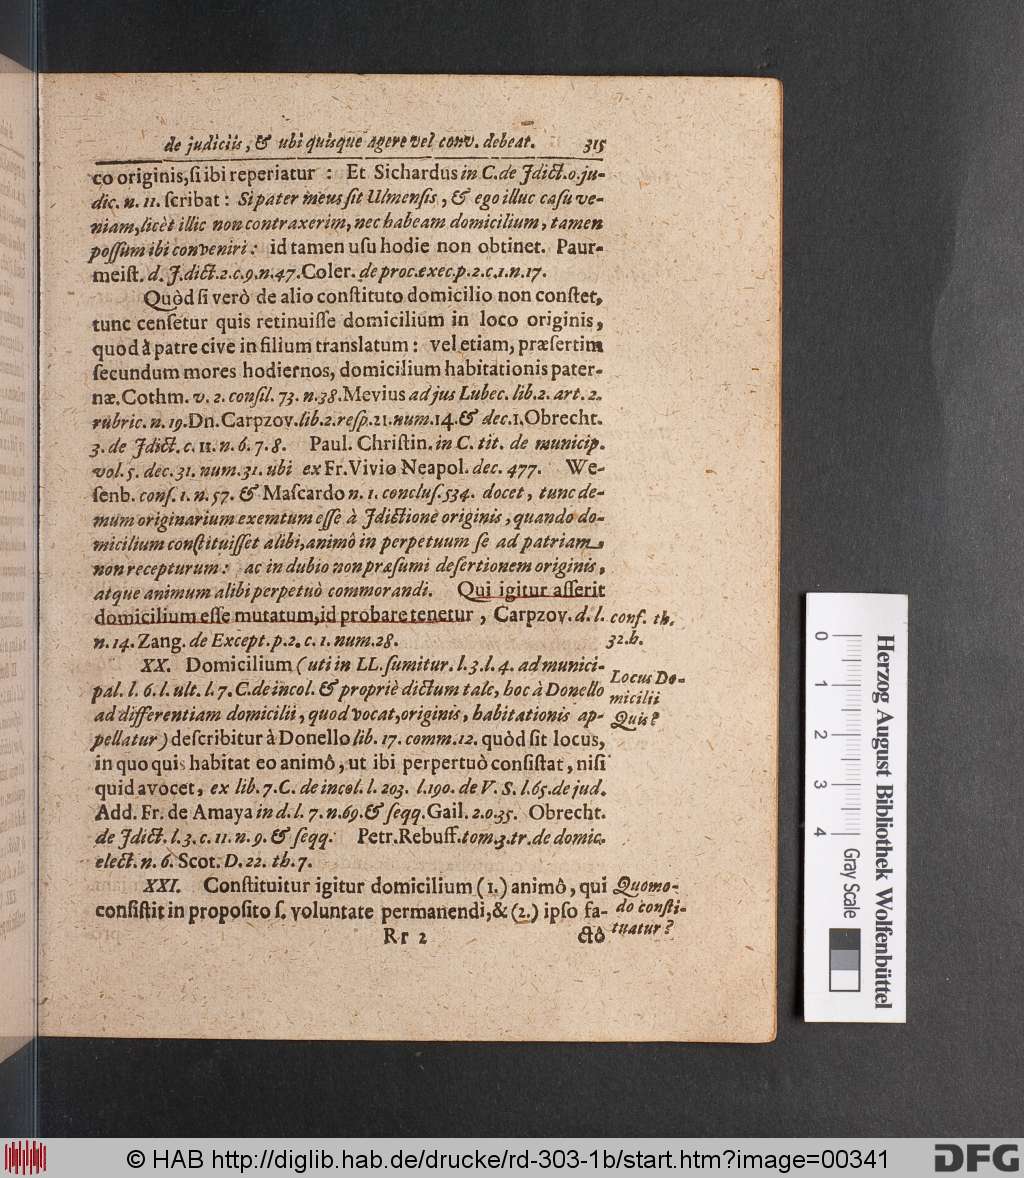 de judiciis, & ubi quisque agere vel conv. debeat. 315
co originis, ſi ibi reperiatur : Et Sichardus in C. de Jdict. o. ju-
dic. n. 11. ſcribat : Si pater meus ſit Ulmenſis, & ego illuc caſu ve-
niam, licèt illic non contraxerim, nec habeam domicilium, tamen
poſſum ibi conveniri : id tamen uſu hodie non obtinet. Paur-
meiſt. d. J.dict. 2. c. 9. n. 47. Coler. de proc. exec. p. 2. c. 1. n. 17.
Quòd ſi verò de alio conſtituto domicilio non conſtet,
tunc cenſetur quis retinuiſſe domicilium in loco originis,
quod à patre cive in filium translatum : vel etiam, præſertim
ſecundum mores hodiernos, domicilium habitationis pater-
næ. Cothm. v. 2. conſil. 73. n. 38. Mevius ad jus Lubec. lib. 2. art. 2.
rubric. n. 19. Dn. Carpzov. lib. 2. reſp. 21. num. 14. & dec. 1. Obrecht.
3. de Jdict. c. 11. n. 6. 7. 8. Paul. Chriſtin. in C. tit. de municip.
vol. 5. dec. 31. num. 31. ubi ex Fr. Vivio Neapol. dec. 477. We-
ſenb. conſ. 1. n. 57. & Maſcardo n. 1. concluſ. 534. docet, tunc de-
mum originarium exemtum eſſe à Jdictione originis, quando do-
micilium conſtituiſſet alibi, animô in perpetuum ſe ad patriam
non recepturum : ac in dubio non præſumi deſertionem originis,
atque animum alibi perpetuò commorandi. Qui igitur aſſerit
domicilium eſſe mutatum, id probare tenetur, Carpzov. d. l.
n. 14. Zang. de Except. p. 2. c. 1. num. 28.
conf. th.
32. h.
XX. Domicilium (uti in LL. ſumitur. l. 3. l. 4. ad munici-
pal. l. 6. l. ult. l. 7. C. de incol. & propriè dictum tale, hoc à Donello
ad differentiam domicilii, quod vocat, originis, habitationis ap-
pellatur) deſcribitur à Donello lib. 17. comm. 12. quòd ſit locus,
in quo quis habitat eo animô, ut ibi perpertuò conſiſtat, niſi
quid avocet, ex lib. 7. C. de incol. l. 203. l. 190. de V. S. l. 65. de jud.
Add. Fr. de Amaya in d. l. 7. n. 69. & ſeqq. Gail. 2. o. 35. Obrecht.
de Jdict. l. 3. c. 11. n. 9. & ſeqq. Petr. Rebuff. tom. 3. tr. de domic.
elect. n. 6. Scot. D. 22. th. 7.
Locus Do-
micilii
Quis?
XXI. Conſtituitur igitur domicilium (1.) animô, qui
conſiſtit in propoſito ſ. voluntate permanendi, & (2.) ipſo fa-
Rr 2 ctô
Quomo-
do conſti-
tuatur?
0 1 2 3 4
Herzog August Bibliothek Wolfenbüttel
Gray Scale
© HAB http://diglib.hab.de/drucke/rd-303-1b/start.htm?image=00341
DFG